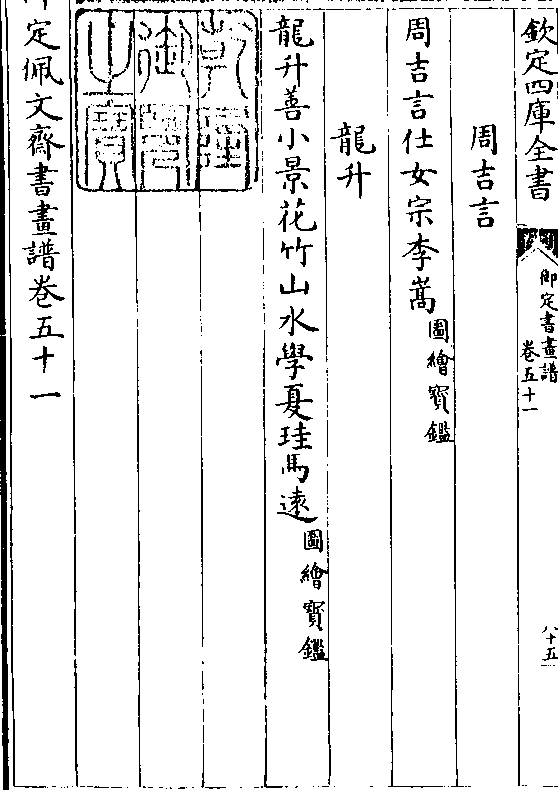 欽定四庫全書
御定書畫譜
卷五十一
八十五
周吉言
周吉言仕女宗李嵩圖繪寳鑑
龍升
龍升善小景花竹山水學夏珪馬逺圖繪寳鑑
乾隆
御覽
之寶
定佩文齋書畫譜卷五十一